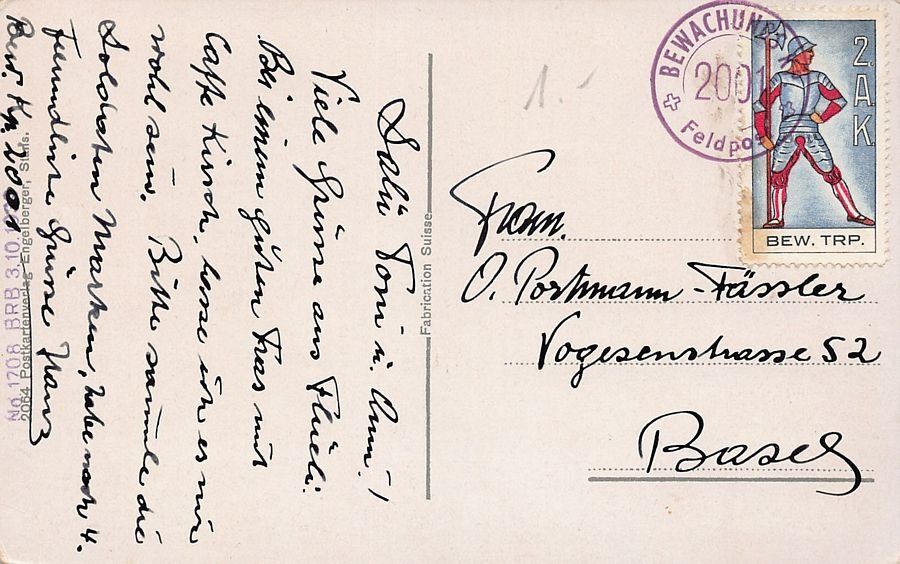 Salü Toni u. Anni!
Viele Grüsse aus Flüeli.
Bei einem guten Fras mit
Caffe Kirsch, lasse ich es mir
wohl sein. Bitte sammle die
Soldaten Marken, habe noch 4.
Freundliche Grüsse Franz
Bew. Kp. 2001
No 1708 BRB 3.10.
2064 Postkartenverlag Engelberger, Stans.
Fabrication Suisse
1.-
BEWACHUN
2001
Feldpo
2.
A.
K.
BEW. TRP.
Fam.
O. Portmann-Fässler
Vogesenstrasse 52
Basel